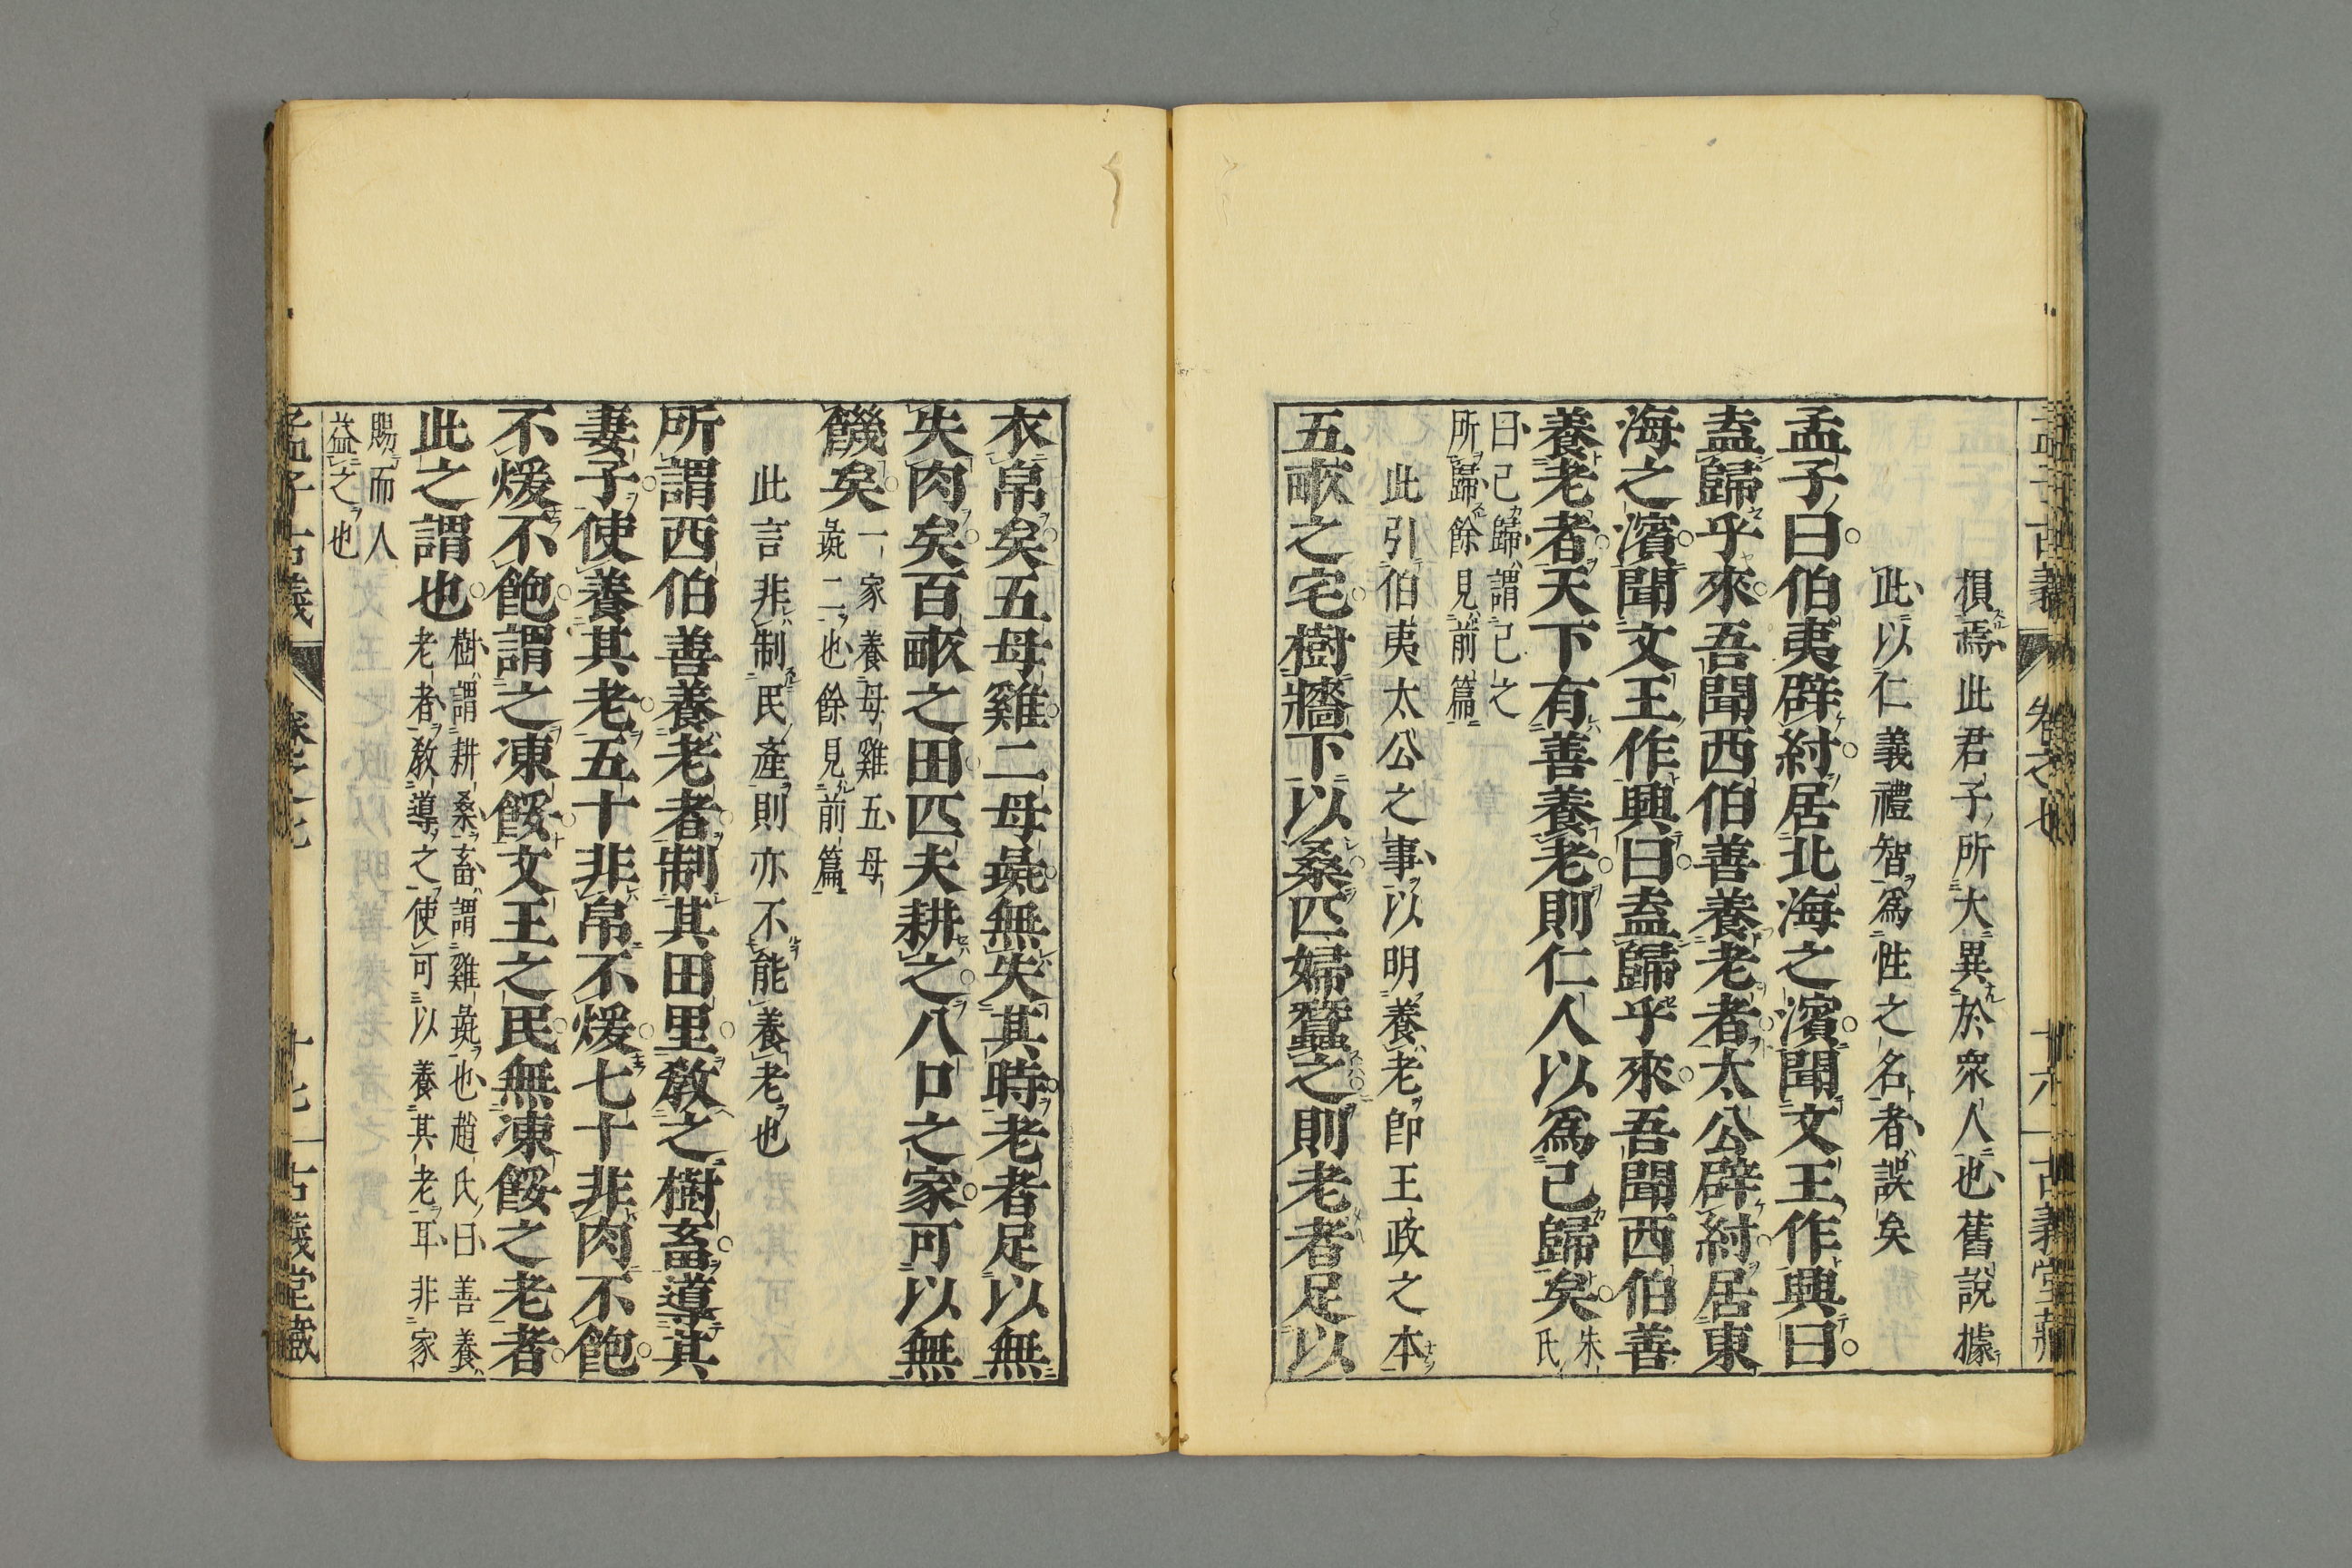 孟子古義 卷之七 十六 古義堂藏
損焉此君子所大異於衆人也舊說據
此以仁義禮智爲性之名者誤矣
孟子曰伯夷辟紂居北海之濱聞文王作興曰
盍歸乎來吾聞西伯善養老者太公辟紂居東
海之濱聞文王作興曰盍歸乎來吾聞西伯善
養老者天下有善養老則仁人以爲己歸矣朱氏
曰己歸謂己之
所歸餘見前篇
此引伯夷太公之事以明養老卽王政之本
五畝之宅樹牆下以桑匹婦蠶之則老者足以
衣帛矣五母雞二母彘無失其時老者足以無
失肉矣百畝之田匹夫耕之八口之家可以無
饑矣
一家養母雞五母
彘二也餘見前篇
此言非制民產則亦不能養老也
所謂西伯善養老者制其田里敎之樹畜導其
妻子使養其老五十非帛不煖七十非肉不飽
不煖不飽謂之凍餒文王之民無凍餒之老者
此之謂也
樹謂耕桑畜謂雞彘也趙氏曰善養
老者敎導之使可以養其老耳非家
賜而人
益之也
孟子古義 卷之七 十七 古義堂藏